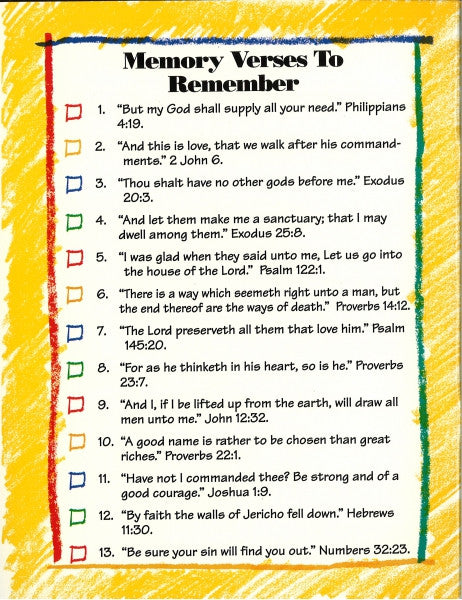 Memory Verses To
Remember
1. “But my God shall supply all your need.” Philippians
4:19.
2. “And this is love, that we walk after his command-
ments.” 2 John 6.
3. “Thou shalt have no other gods before me.” Exodus
20:3.
4. “And let them make me a sanctuary; that I may
dwell among them.” Exodus 25:8.
5. “I was glad when they said unto me, Let us go into
the house of the Lord.” Psalm 122:1.
6. “There is a way which seemeth right unto a man, but
the end thereof are the ways of death.” Proverbs 14:12.
7. “The Lord preserveth all them that love him.” Psalm
145:20.
8. “For as he thinketh in his heart, so is he.” Proverbs
23:7.
9. “And I, if I be lifted up from the earth, will draw all
men unto me.” John 12:32.
10. “A good name is rather to be chosen than great
riches.” Proverbs 22:1.
11. “Have not I commanded thee? Be strong and of a
good courage.” Joshua 1:9.
12. “By faith the walls of Jericho fell down.” Hebrews
11:30.
13. “Be sure your sin will find you out.” Numbers 32:23.